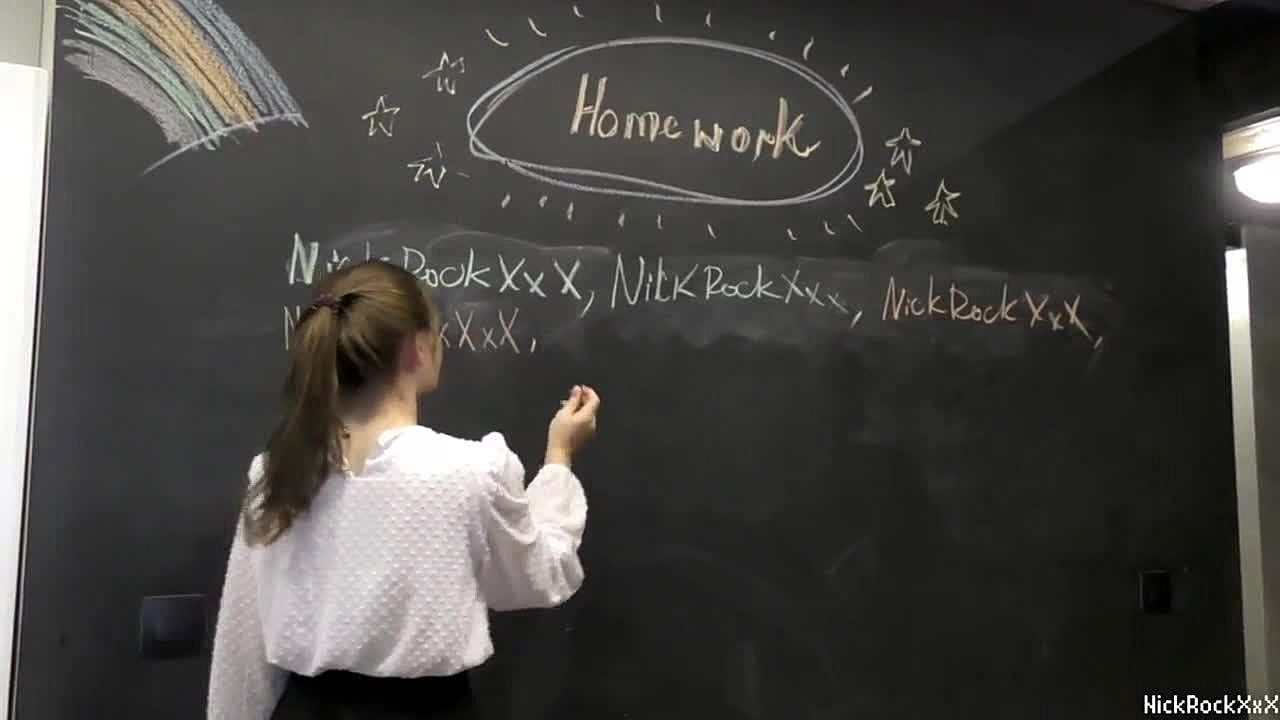 Homework
NickRockXxX, NickRockXxx, NickRockXxX,
xXxX,
NickRockXxX